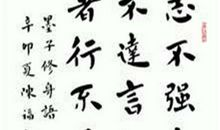 志不强
不達言
者行不
墨子修身語
辛卯夏陳福